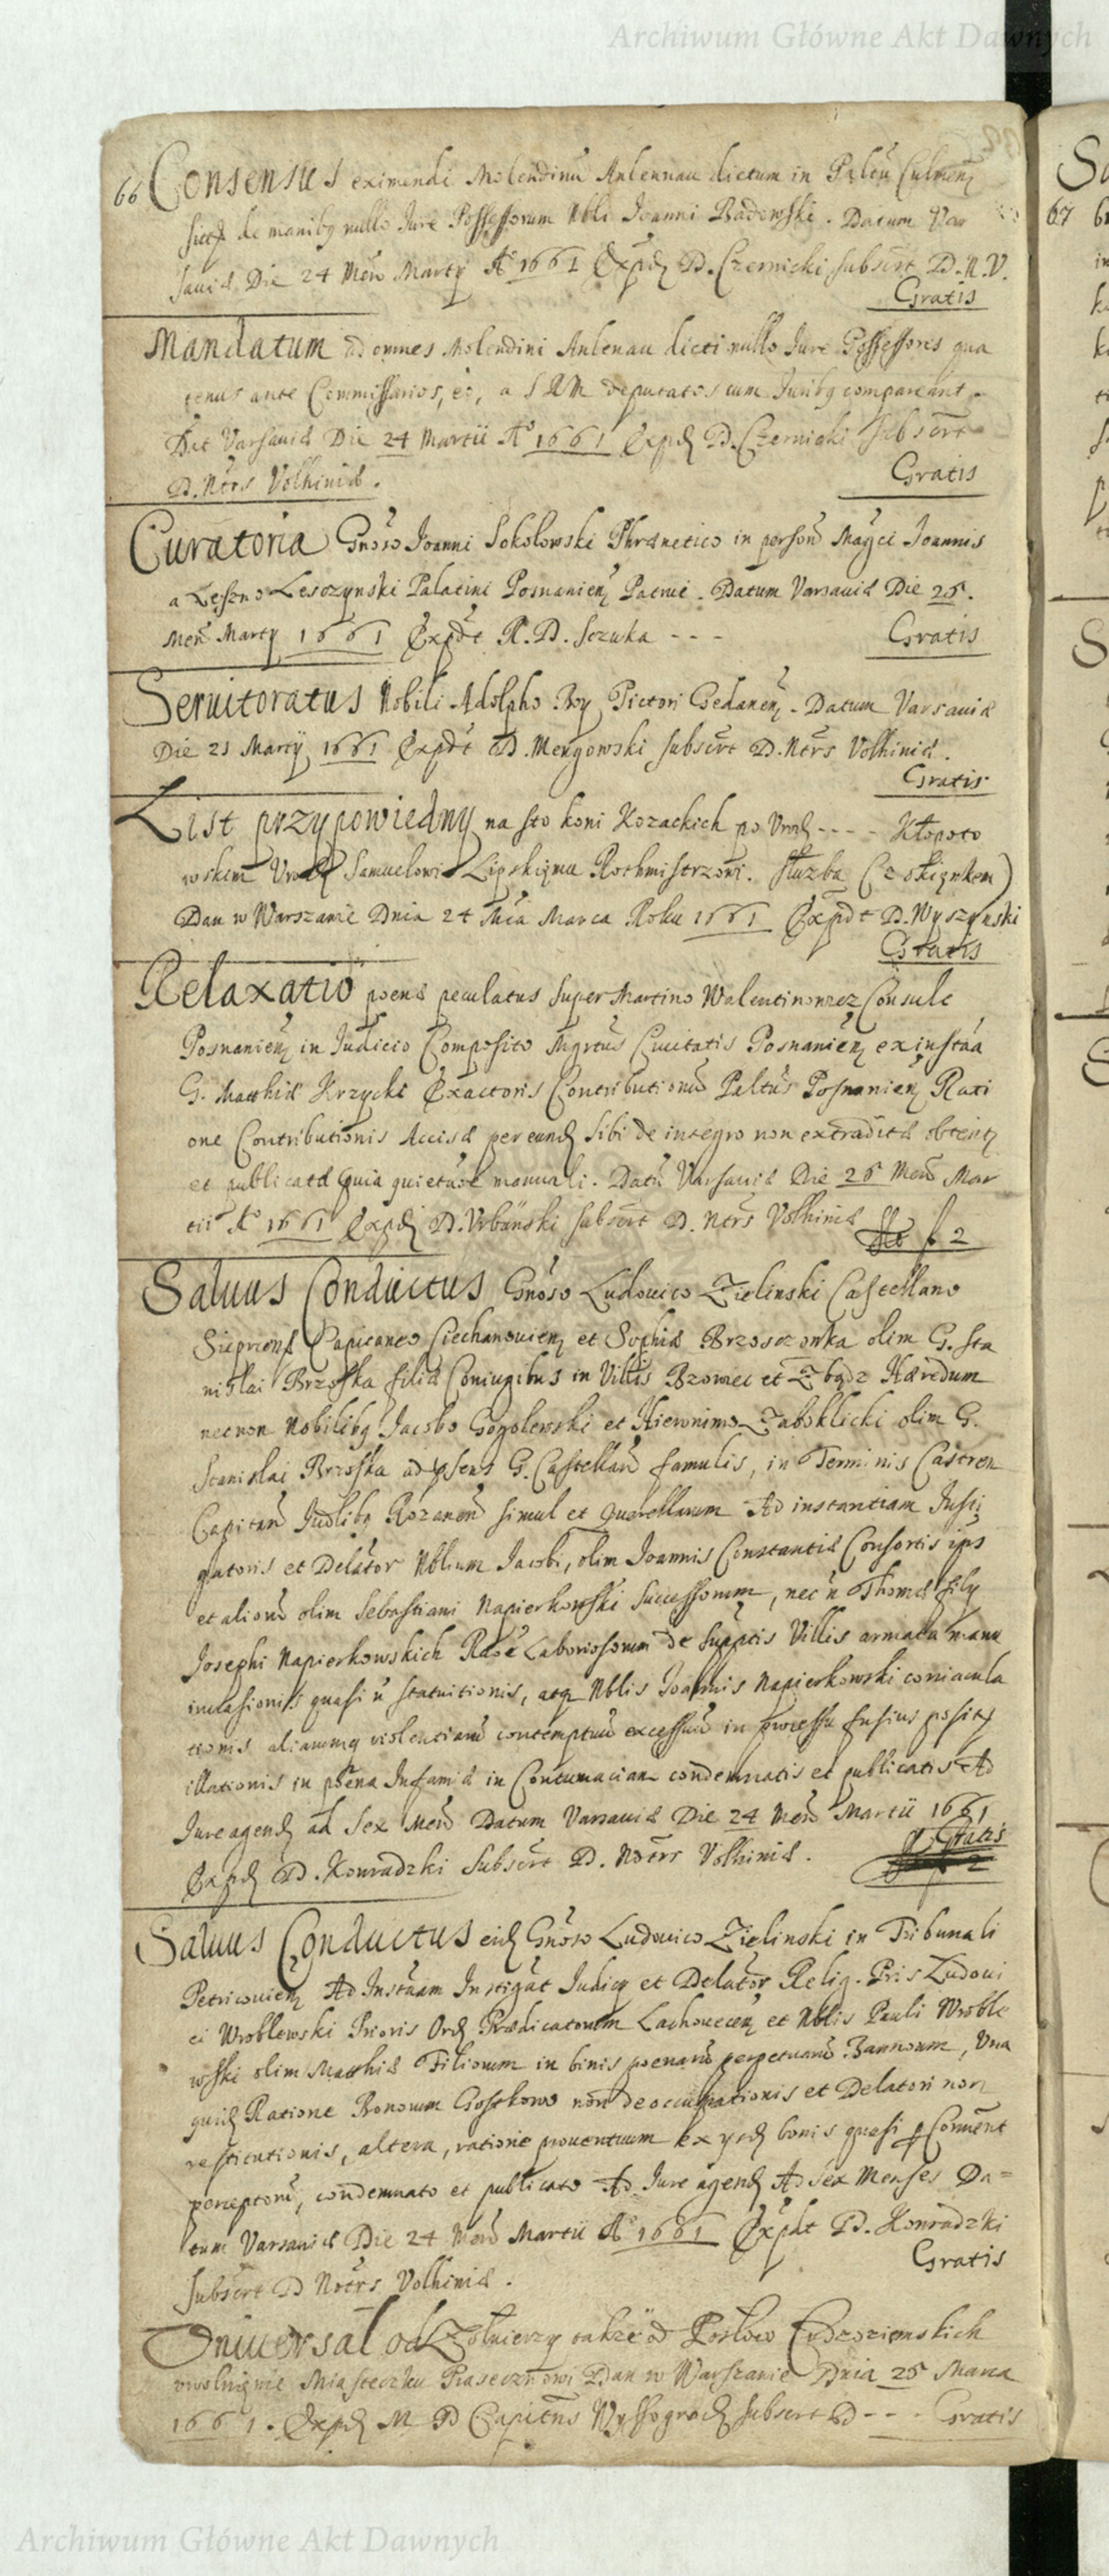 Archiwum Główne Akt Dawnych
66 Consensus eximendi Molendinũ Anlennau dictum in Paltu Culmen
sicq de manibq nullo Jure Possessorum Nbli Joanni Badowski. Datum Var
saviæ Die 24 Men Martÿ Aº 1661 Expd D. Czernicki subscrt D. N. V.
Gratis
Mandatum ad omnes Molendini Anlenau dicti nullo Jure Possessores qua
tenus ante Commissarios, eo, a S R M deputatos cum Juribq compareant.
Dat Varsaviæ Die 24 Martii Aº 1661 Expd D. Czernicki subscrt
D. Ntrs Volhiniæ.
Gratis
Curatoria Gnoso Joanni Sokolowski Phrænetico in person Magci Joannis
a Leszno Lesczynski Palatini Posnanien Patrui. Datum Varsaviæ Die 26.
Men Marty 1661 Expdt R. D. Sczuka - - -
Gratis
Servitoratus Nobili Adolpho Boy Pictori Gedanen. Datum Varsaviæ
Die 21 Martÿ 1661 Expdt D. Mengowski subscrt D. Ntrs Volhiniæ.
Gratis
List przypowiedny na sto koni Kozackich po Urod - - - - Kłopoto
wskim Urod Samuelowi Lipskiemu Rothmistrzowi. służba (z okienkem)
Dan w Warszawie Dnia 24 Mca Marca Roku 1661 Expdt D. Wyszynski
Gratis
Relaxatio poenæ peculatus super Martino Walentinowicz Consule
Posnanien in Judicio Composito Mgrtus Civitatis Posnanien ex instãa
G. Matthiæ Krzycki Exactoris Contributionũ Paltus Posnanien Rati
one Contributionis Accisæ per eund sibi de integro non extraditæ obtent
et publicatæ quia quietavæ manuali. Datũ Varsaviæ Die 26 Men Mar
tii Aº 1661 Expd D. Urbanski subscrt D. Ntrs Volhiniæ
f 2
Salvus Conductus Gnoso Ludovico Zielinski Castellano
Sieprcens Capitaneo Ciechanovien et Sophiæ Brzosczonka olim G. Sta
nislai Brzoska filiæ Coniugibus in Villis Bzowiec et Zbądz Hæredum
necnon Nobilibq Jacobo Gogolewski et Hieronimo Zaboklicki olim G.
Stanislai Brzoska ad psens G. Castellañ famulis, in Terminis Castren
Capitan Judlibq Rozanen simul et Querellarum Ad instantiam Insti
gatoris et Delator Nblium Jacobi, olim Joannis Constantiæ Consortis ips
et aliorũ olim Sebastiani Napierkowski Successorum, nec ñ Thomæ fily
Josephi Napierkowskich Raõe Laboriosorum de supptis Villis armata manu
invasionis quasi ñ statuitionis, atq Nblis Joannis Napierkowski coniacula
tionis aliarumq violentiarũ contemptuũ excessuũ in processu fusius posit
illationis in pæna Infamiæ in Contumaciam condemnatis et publicatis Ad
Jure agend ad Sex Men Datum Varsaviæ Die 24 Men Martii 1661
Expd D. Konradzki Subscrt D. Notrs Volhiniæ.
Gratis
Salvus Conductus eid Gnoso Ludovico Zielinski in Tribunali
Petricovien Ad Instãam Instigat Judicy et Delator Relig. Pris Ludovi
ci Wroblewski Prioris Ord Prædicatorum Lachovecen et Nblis Pauli Wroble
wski olim Matthiæ Filiorum in binis poenarũ perpetuarũ Bannorum, Una
quid Ratione Bonorum Gostkowo non deoccupationis et Delatori non
restitutionis, altera, ratione proventuum ex ysd bonis quasi p Convent
perceptorũ, condemnato et publicato Ad Jure agend Ad Sex Menses Da=
tum Varsaviæ Die 24 Men Martii Aº 1661 Expdt D. Konradzki
Subscrt D Notrs Volhiniæ.
Gratis
Uniwersał od Zołnierzy także od Posłow Cudzoziemskich
uwolnienie Miasteczku Piasecznowi Dan w Warszawie Dnia 25 Marca
1661. Expd M D Capitns Wyssogrod subscrt D - - - Gratis
67
Archiwum Główne Akt Dawnych